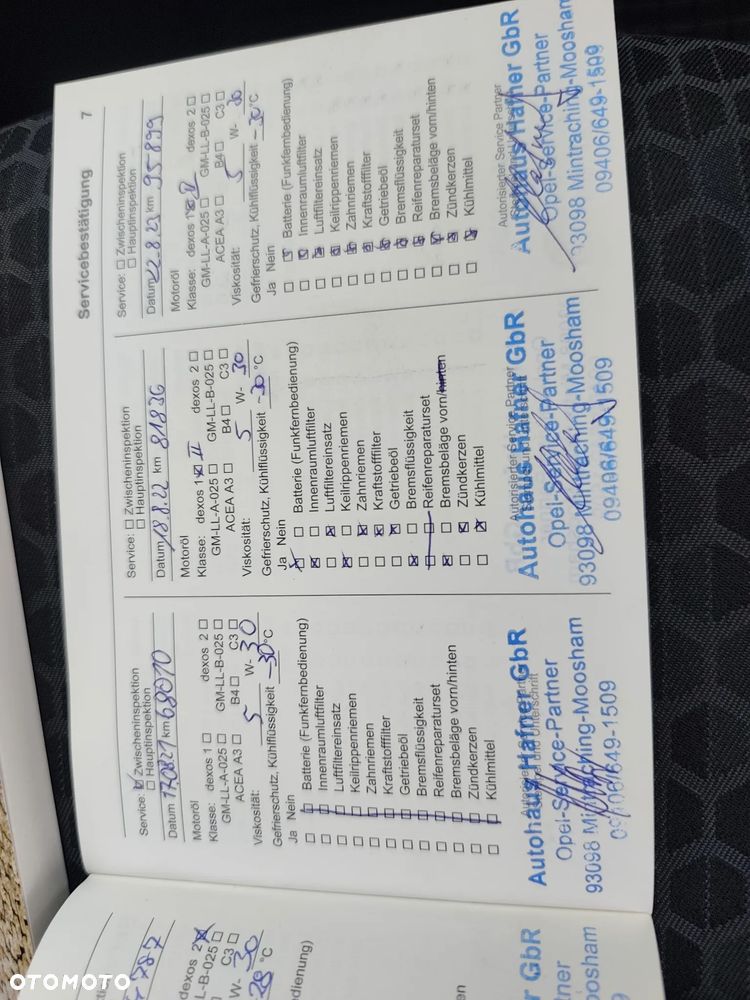 Servicebestätigung 7
Service: ☐ Zwischeninspektion
☐ Hauptinspektion
Datum 22.8.23 km 95899
Motoröl
Klasse: dexos 1 ☒ II dexos 2 ☐
GM-LL-A-025 ☐ GM-LL-B-025 ☐
ACEA A3 ☐ B4 ☐ C3 ☐
Viskosität: 5 W- 30
Gefrierschutz, Kühlflüssigkeit -30 °C
Ja Nein
☐ ☒ Batterie (Funkfernbedienung)
☐ ☒ Innenraumluftfilter
☐ ☒ Luftfiltereinsatz
☐ ☒ Keilrippenriemen
☐ ☒ Zahnriemen
☐ ☒ Kraftstofffilter
☐ ☒ Getriebeöl
☐ ☒ Bremsflüssigkeit
☐ ☒ Reifenreparaturset
☐ ☒ Bremsbeläge vorn/hinten
☐ ☒ Zündkerzen
☐ ☒ Kühlmittel
Autorisierter Service Partner
Autohaus Hafner GbR
Opel-Service-Partner
93098 Mintraching-Moosham
09406/649-1509
Service: ☐ Zwischeninspektion
☐ Hauptinspektion
Datum 18.8.22 km 81836
Motoröl
Klasse: dexos 1 ☒ II dexos 2 ☐
GM-LL-A-025 ☐ GM-LL-B-025 ☐
ACEA A3 ☐ B4 ☐ C3 ☐
Viskosität: 5 W- 30
Gefrierschutz, Kühlflüssigkeit -30 °C
Ja Nein
☒ ☐ Batterie (Funkfernbedienung)
☒ ☐ Innenraumluftfilter
☐ ☒ Luftfiltereinsatz
☒ ☐ Keilrippenriemen
☐ ☒ Zahnriemen
☐ ☒ Kraftstofffilter
☐ ☒ Getriebeöl
☒ ☐ Bremsflüssigkeit
☐ ☐ Reifenreparaturset
☒ ☐ Bremsbeläge vorn/hinten
☐ ☒ Zündkerzen
☐ ☒ Kühlmittel
Autorisierter Service Partner
Autohaus Hafner GbR
Opel-Service-Partner
93098 Mintraching-Moosham
09406/649-1509
Service: ☒ Zwischeninspektion
☐ Hauptinspektion
Datum 17.08.21 km 68070
Motoröl
Klasse: dexos 1 ☐ dexos 2 ☐
GM-LL-A-025 ☐ GM-LL-B-025 ☐
ACEA A3 ☐ B4 ☐ C3 ☐
Viskosität: 5 W- 30
Gefrierschutz, Kühlflüssigkeit -30 °C
Ja Nein
☐ ☐ Batterie (Funkfernbedienung)
☐ ☐ Innenraumluftfilter
☐ ☐ Luftfiltereinsatz
☐ ☐ Keilrippenriemen
☐ ☐ Zahnriemen
☐ ☐ Kraftstofffilter
☐ ☐ Getriebeöl
☐ ☐ Bremsflüssigkeit
☐ ☐ Reifenreparaturset
☐ ☐ Bremsbeläge vorn/hinten
☐ ☐ Zündkerzen
☐ ☐ Kühlmittel
Autohaus Hafner GbR
Opel-Service-Partner
93098 Mintraching-Moosham
09406/649-1509
787
dexos 2 ☒
L-B-025 ☐
C3 ☐
W- 30
°C
dienung)
en
r GbR
tner
oosham
09
OTOMOTO